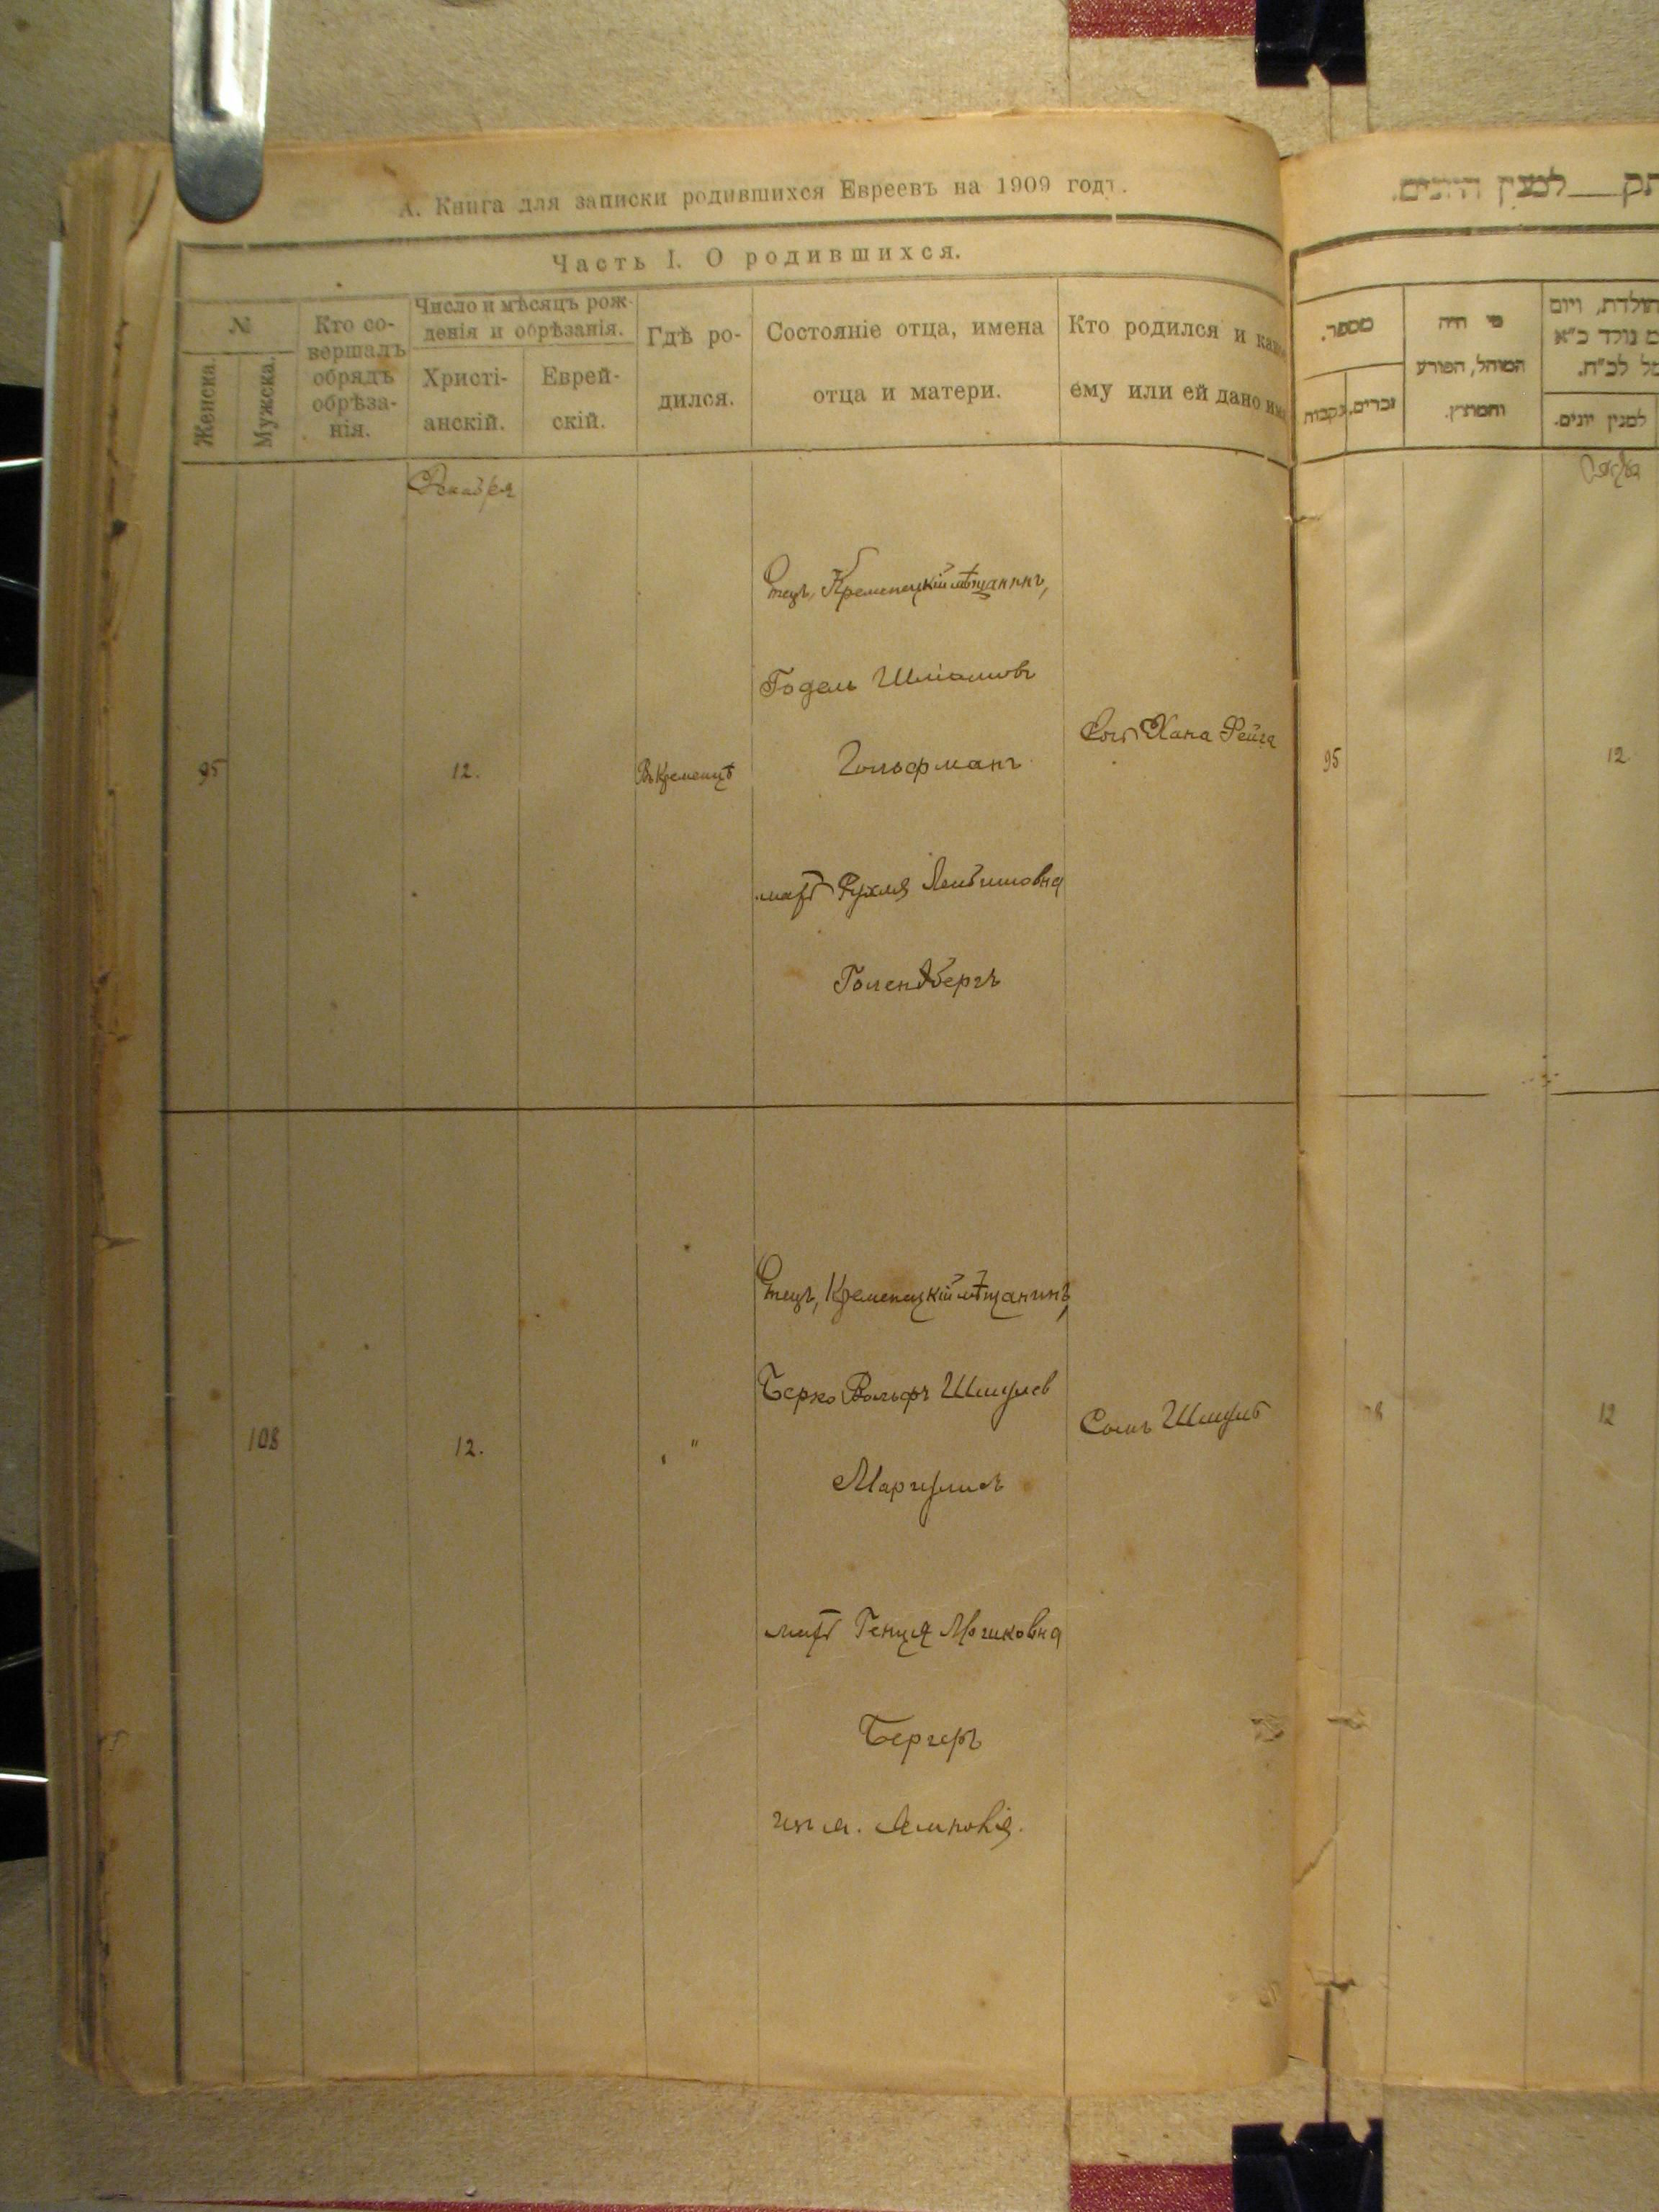 А. Книга для записки родившихся Евреевъ на 1909 годъ.
Часть I. О родившихся.
№
Женска.
Мужска.
Кто со-
вершалъ
обрядъ
обрѣза-
нія.
Число и мѣсяцъ рож-
денія и обрѣзанія.
Христі-
анскій.
Еврей-
скій.
Гдѣ ро-
дился.
Состояніе отца, имена
отца и матери.
Кто родился и какое
ему или ей дано имя
Декабря
95
12.
Въ Кременцѣ
Отецъ, Кременецкій мѣщанинъ,
Годель Шліомовъ
Гольфманъ
мать Рухля Лейбишовна
Голендбергъ
Дочь Хана Фейга
108
12.
"
Отецъ, Кременецкій мѣщанинъ,
Берко Вольфъ Шмулев
Маргулисъ
мать Генця Мошковна
Бергеръ
Сынъ Шмуль
לסנין היונים.
מספר.
זכרים.
נקבות
מי היה
המוהל, הפורע
והמוצץ.
למנין יונים.
95
12.
12